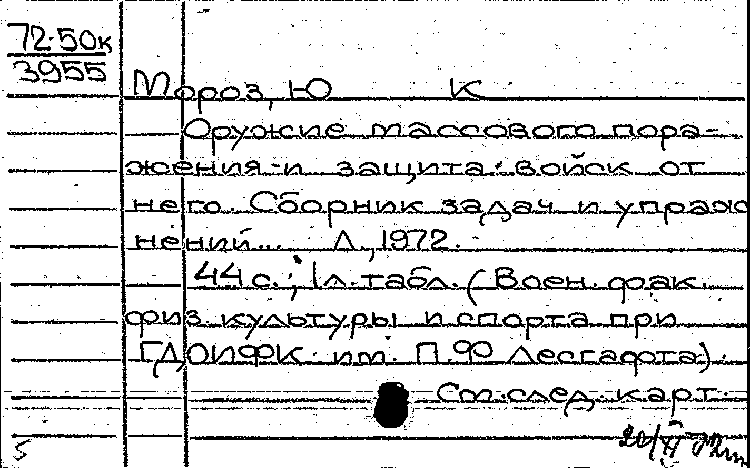 72-50к
3955
Мороз, Ю К
Оружие массового пора-
жения и защита войск от
него. Сборник задач и упраж
нений... Л., 1972.
44 с.; 1 л. табл. (Воен. фак.
физ. культуры и спорта при
ГДОИФК им. П.Ф Лесгафта).
См. след. карт.
5